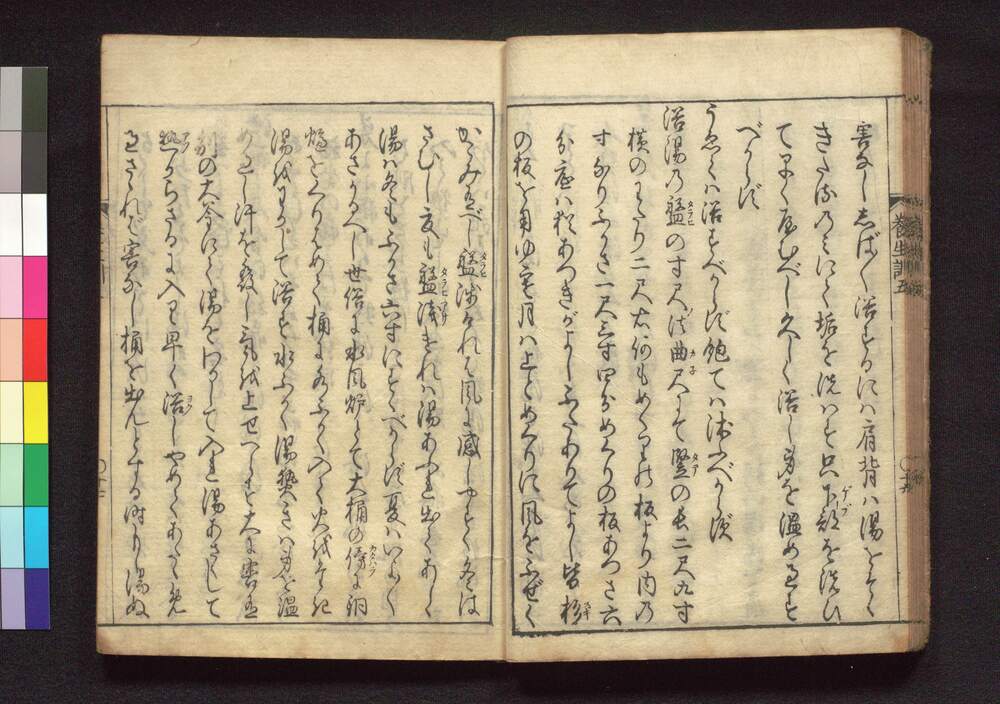 害なししばしば浴するには肩背は湯をそそ
きたるのみにて垢を洗はず只下部を洗ひ
て早くやむべし久しく浴し身を温め過す
べからず
うゑては浴すべからず飽ては沐べからず
浴湯の盤の寸尺の法曲尺にて竪の長二尺九寸
横のわたり二尺右何もめぐりの板より内の
寸なりふかさ一尺三寸四分めぐりの板あつさ六
分底は猶あつきがよしふたありてよし皆杉
の板を用ゆ寒月は上とめぐりに風をふせぐ
かこみあるべし盤浅ければ風に感じやすく冬は
さむし夏も盤浅ければ湯あふれ出てあしく
湯は冬もふかさ六寸にすぐべからず夏はいよいよ
あさかるべし世俗に水風炉とて大桶の傍に銅
炉をくりはめて桶に水ふかく入て火をたき
湯をわかして浴す水ふかく湯熱きは身を温
め過し汗を発し気を上せへらす大に害有
別の大釜にて湯をわかして入れ湯あさくして
熱からざるに入り早く浴しやめてあたため
過さざれば害なし桶を出んとする時もし湯ぬ
養生訓五